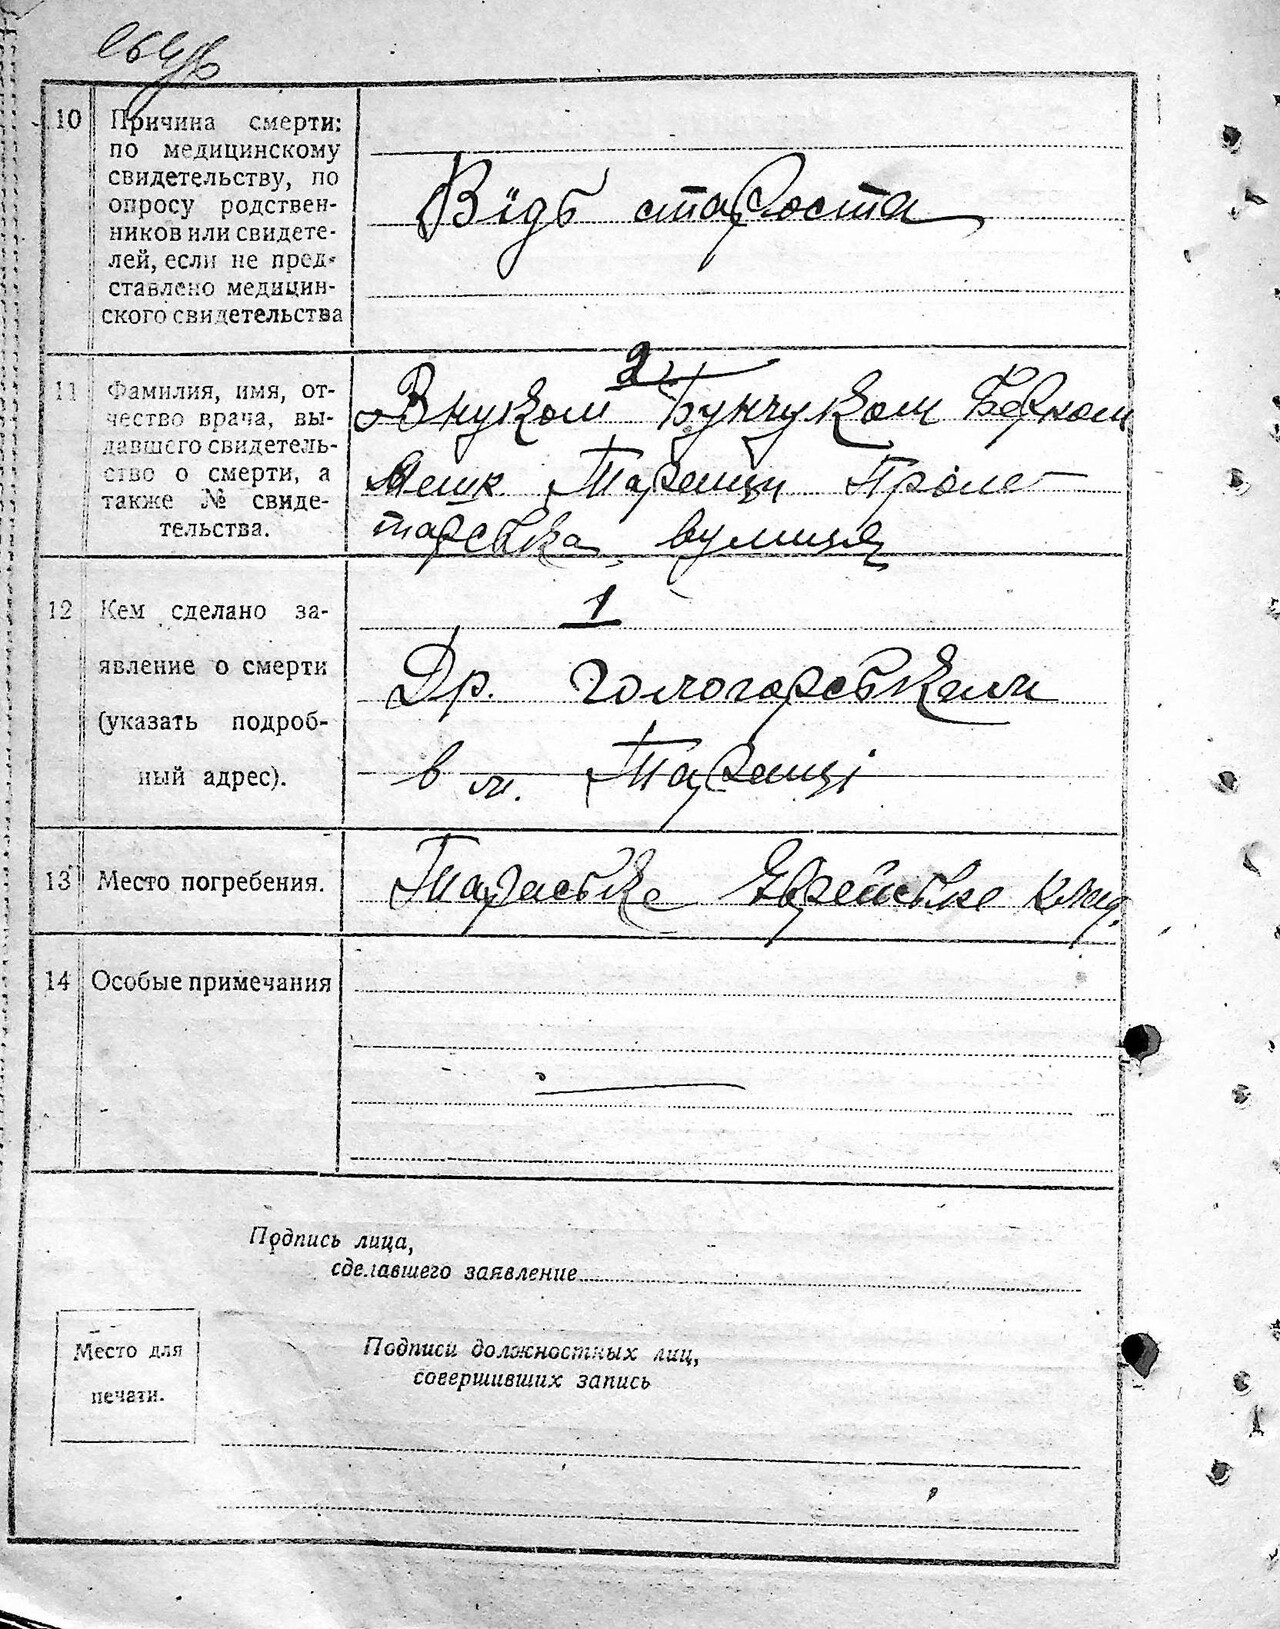 10 Причина смерти:
по медицинскому
свидетельству, по
опросу родствен-
ников или свидете-
лей, если не пред-
ставлено медицин-
ского свидетельства
Вiдь старости
11 Фамилия, имя, от-
чество врача, вы-
давшего свидетель-
ство о смерти, а
также № свиде-
тельства.
2
Внуком Бунчуком Берком
Мешк Таращи Проле-
тарська вулиця
12 Кем сделано за-
явление о смерти
(указать подроб-
ный адрес).
1
Др. Гологорським
в м. Таращі
13 Место погребения.
Тараське Єврейське клад.
14 Особые примечания
Подпись лица,
сделавшего заявление
Место для
печати.
Подписи должностных лиц,
совершивших запись